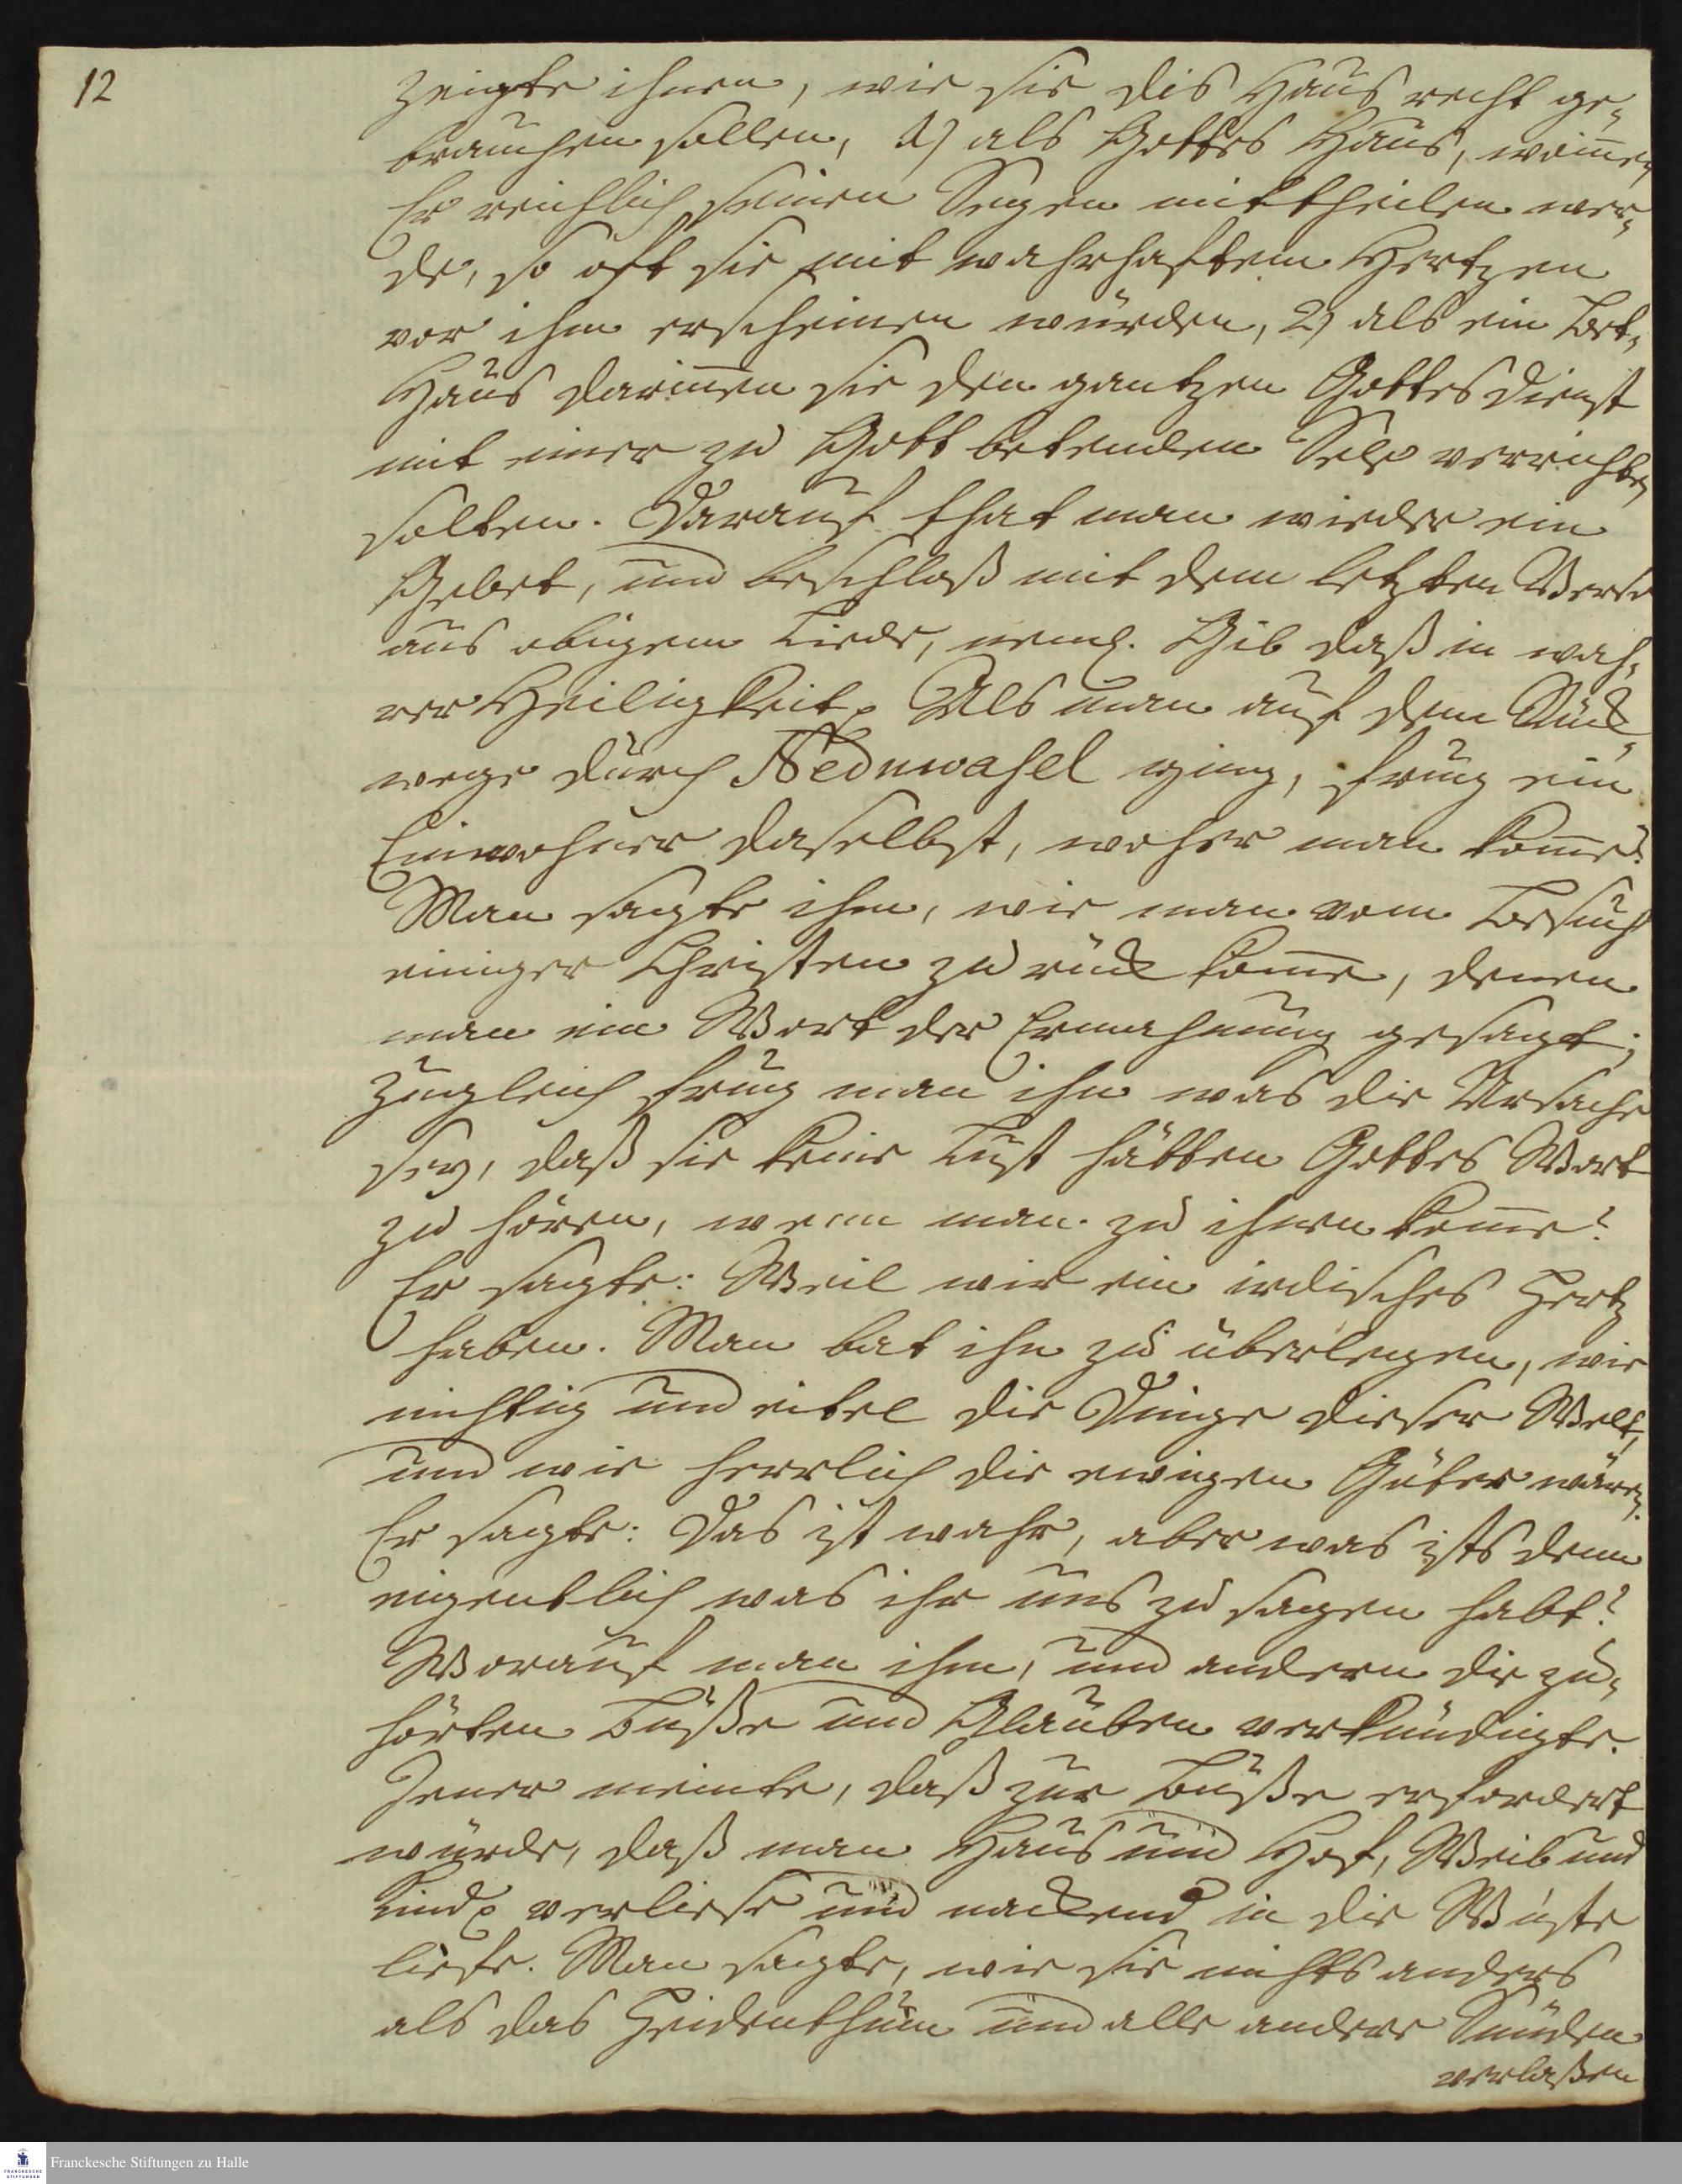 12
zeigte ihnen, wie sie dis Haus recht ge-
brauchen sollen, 1) als Gottes Haus, worinnen
Er reichlich seinen Segen mittheilen wer-
de, so oft sie mit wahrhaftem Hertzen
vor ihm erscheinen würden, 2) als ein Bet-
Haus darinnen sie den gantzen Gottesdienst
mit einer zu Gott betenden Sele verrichten
solten. Darauf that man wieder ein
Gebet, und beschloß mit dem letzten Verse
aus obigem Liede, neml. Gib daß in wah-
rer Heiligkeit p Als man auf dem Rück-
wege durch Neduwasel ging, frug ein
Einwohner daselbst, woher man komme?
Man sagte ihm, wie man vom Besuch
einiger Christen zurück komme, denen
man ein Wort der Ermahnung gesagt;
Zugleich frug man ihn was die Ursache
sey, daß sie keine Lust hätten Gottes Wort
zu hören, wenn man zu ihnen komme?
Er sagte: Weil wir ein irdisches Hertz
haben. Man bat ihn zu überlegen, wie
nichtig und eitel die Dinge dieser Welt,
und wie herrlich die ewigen Güter wären.
Er sagte: Das ist wahr, aber was ists denn
eigentlich was ihr uns zu sagen habt?
Worauf man ihm, und andern die zu-
hörten Buße und Glauben verkündigte.
Jener meinte, daß zur Buße erfordert
würde, daß man Haus und Hof, Weib und
Kind p verliese und nackend in die Wüste
liefe. Man sagte, wie sie nichts anders
als das Heidenthum und alle andere Sünden
verlaßen
Franckesche Stiftungen zu Halle